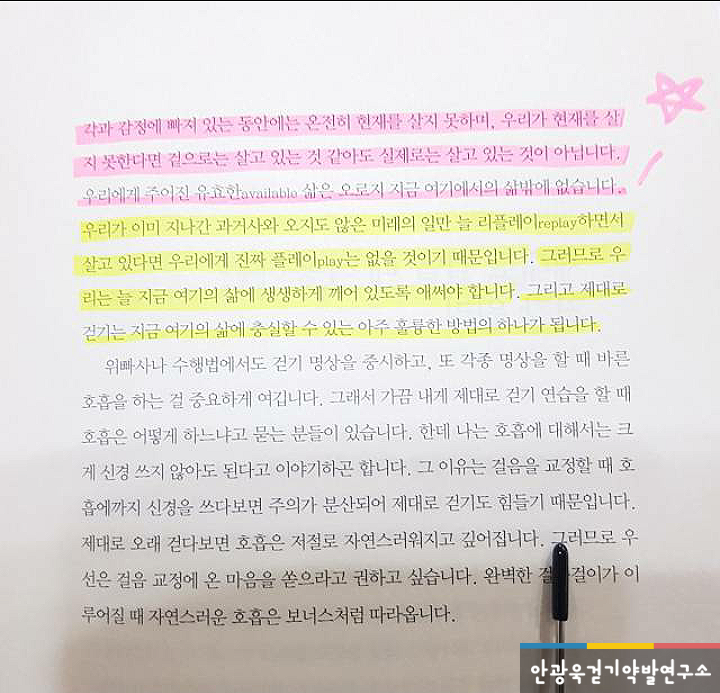 각과 감정에 빠져 있는 동안에는 온전히 현재를 살지 못하며, 우리가 현재를 살
지 못한다면 겉으로는 살고 있는 것 같아도 실제로는 살고 있는 것이 아닙니다.
우리에게 주어진 유효한available 삶은 오로지 지금 여기에서의 삶밖에 없습니다.
우리가 이미 지나간 과거사와 오지도 않은 미래의 일만 늘 리플레이replay하면서
살고 있다면 우리에게 진짜 플레이play는 없을 것이기 때문입니다. 그러므로 우
리는 늘 지금 여기의 삶에 생생하게 깨어 있도록 애써야 합니다. 그리고 제대로
걷기는 지금 여기의 삶에 충실할 수 있는 아주 훌륭한 방법의 하나가 됩니다.
위빠사나 수행법에서도 걷기 명상을 중시하고, 또 각종 명상을 할 때 바른
호흡을 하는 걸 중요하게 여깁니다. 그래서 가끔 내게 제대로 걷기 연습을 할 때
호흡은 어떻게 하느냐고 묻는 분들이 있습니다. 한데 나는 호흡에 대해서는 크
게 신경 쓰지 않아도 된다고 이야기하곤 합니다. 그 이유는 걸음을 교정할 때 호
흡에까지 신경을 쓰다보면 주의가 분산되어 제대로 걷기도 힘들기 때문입니다.
제대로 오래 걷다보면 호흡은 저절로 자연스러워지고 깊어집니다. 그러므로 우
선은 걸음 교정에 온 마음을 쏟으라고 권하고 싶습니다. 완벽한 이
루어질 때 자연스러운 호흡은 보너스처럼 따라옵니다.
안광욱걷기약발연구소